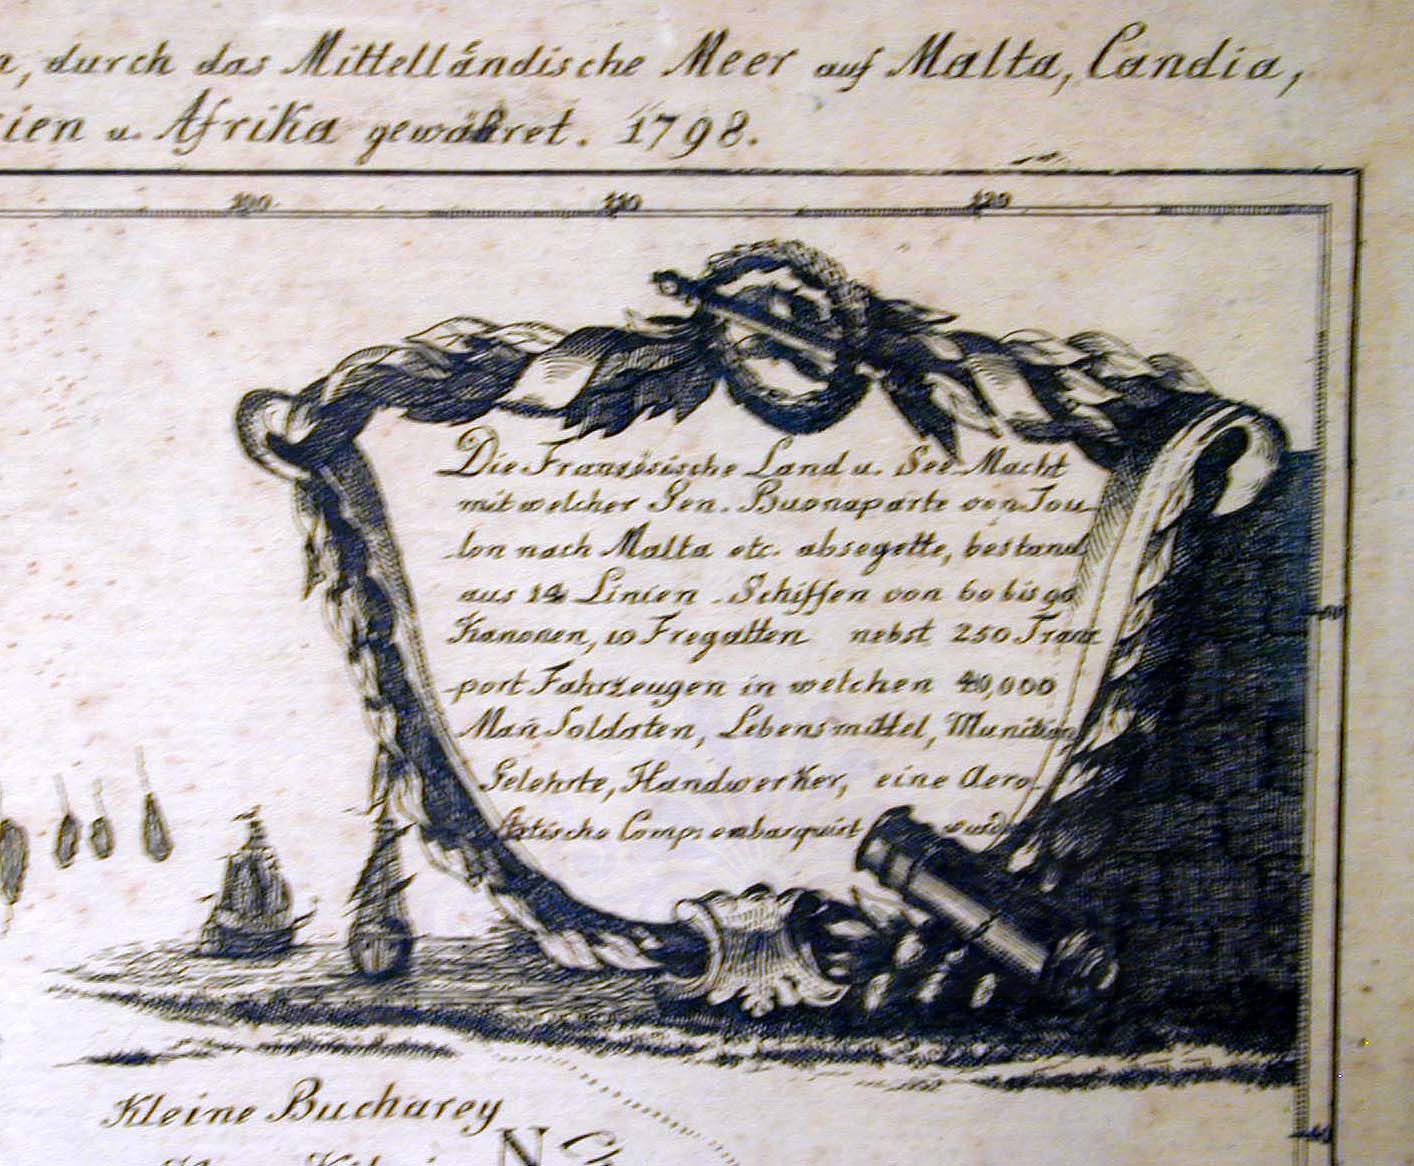 durch das Mittelländische Meer auf Malta, Candia,
ien u. Afrika gewähret. 1798.
100 110 120
Die Französische Land u. See-Macht
mit welcher Gen. Buonaparte von Tou-
-lon nach Malta etc. absegelte, bestand
aus 14 Linien-Schiffen von 60 bis 90
Kanonen, 10 Fregatten nebst 250 Trans
-port Fahrzeugen in welchen 40,000
Mañ Soldaten, Lebensmittel, Munition
Gelehrte, Handwerker, eine Aero-
statische Comp: embarquirt wurde
50
Kleine Bucharey
N Ch
40